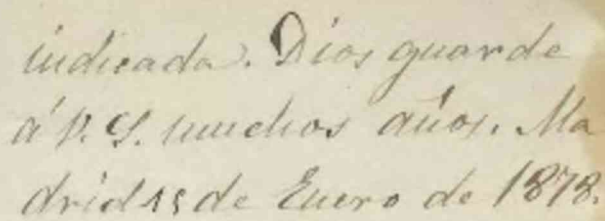 indicada. Dios guarde
á V. S. muchos años. Ma
drid 15 de Enero de 1878.